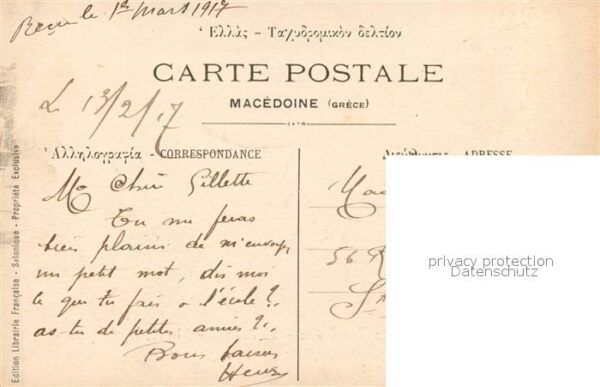 Reçu le 1er mars 1917
Ἑλλὰς - Ταχυδρομικὸν δελτίον
CARTE POSTALE
MACÉDOINE (GRÈCE)
Le 13/2/17
Ἀλληλογραφία - CORRESPONDANCE
Διεύθυνσις - ADRESSE
Ma Chère Gillette
Tu me feras
bien plaisir de m'envoyer
un petit mot, dis moi
ce que tu fais à l'école?.
as-tu de petites amies?.
Bons baisers
Henry
56 R
privacy protection
Datenschutz
Edition Librairie Française - Salonique - Propriété Exclusive